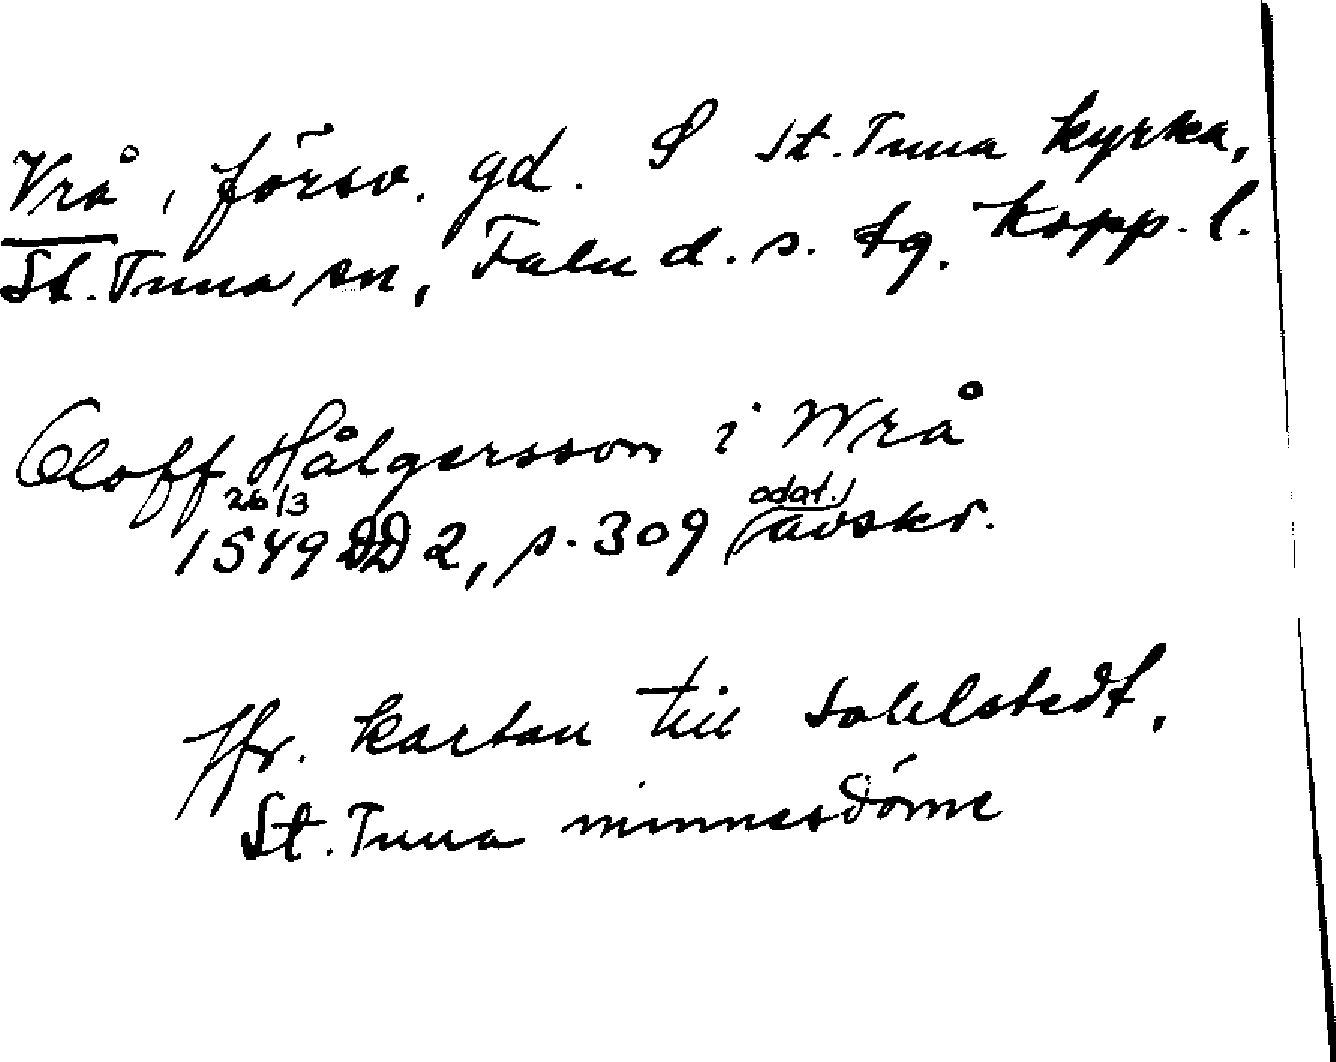 Vrå, försv. gd. S St. Tuna kyrka,
St. Tuna sn, Falu d.s. tg. Kopp. l.
Oloff Hålgersson i Wrå
26/3 1549 DD 2, s. 309 (odat.) avskr.
Jfr. kartan till Sahlstedt,
St. Tuna minnesdöme